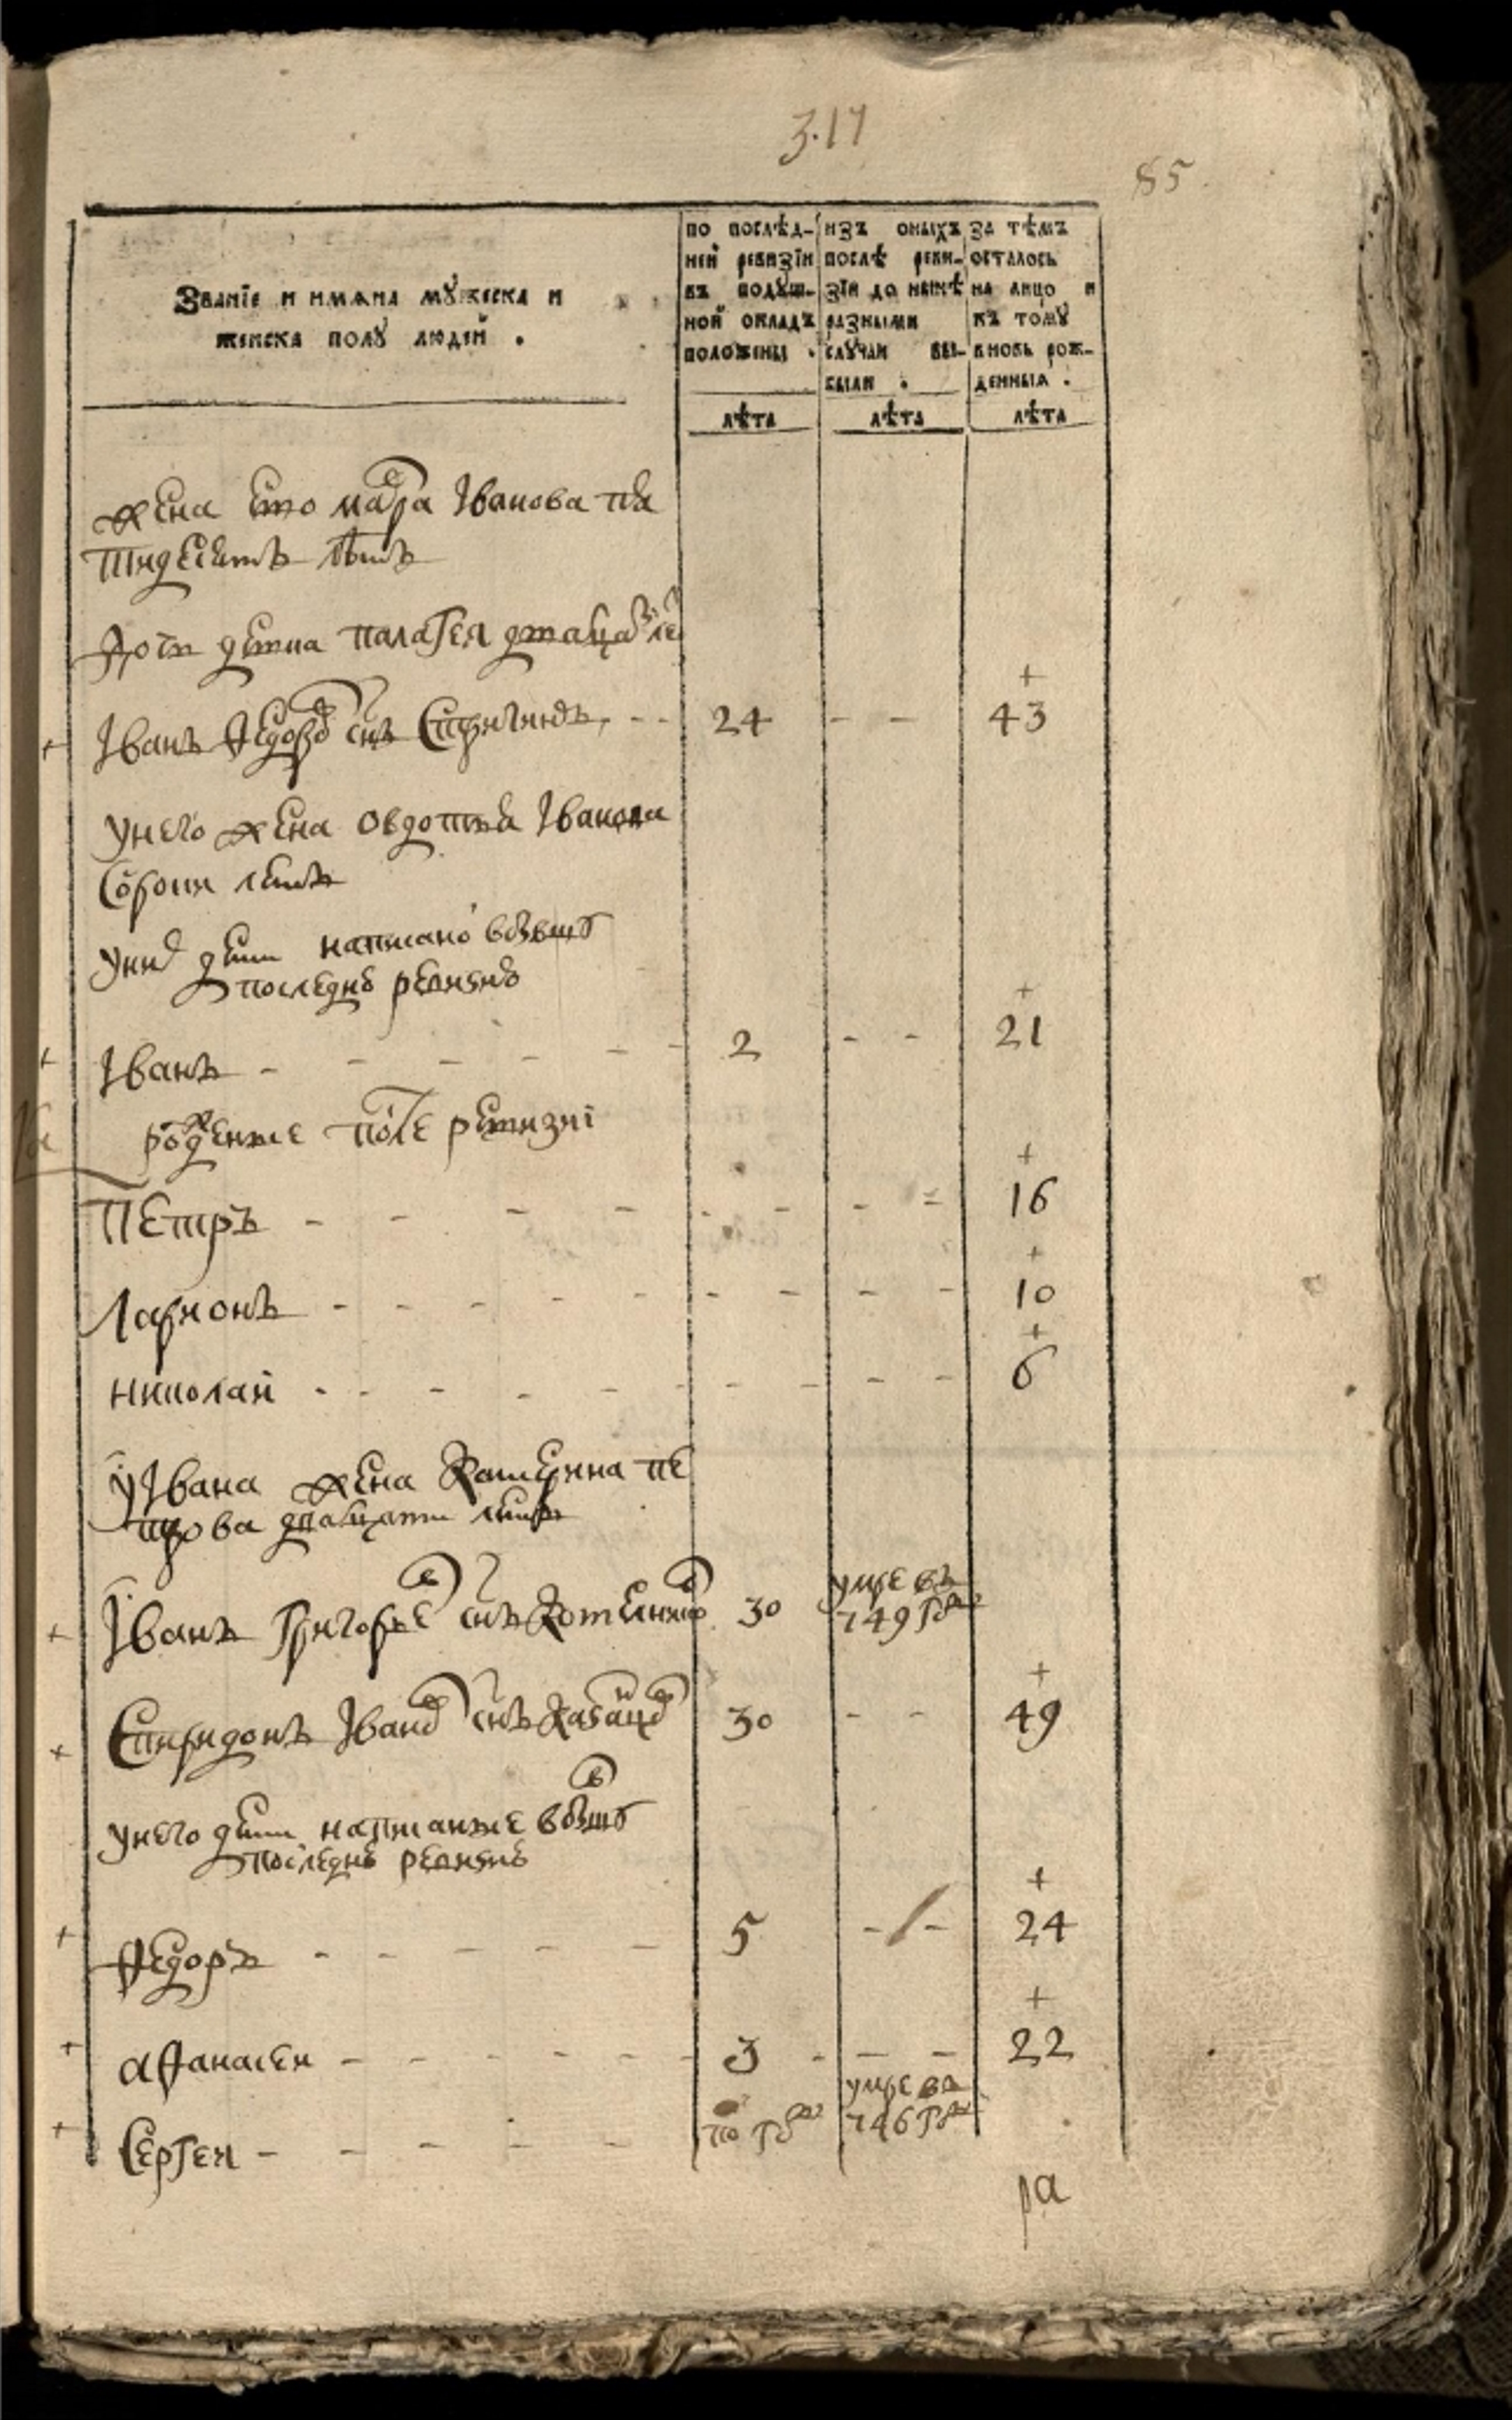 317
85
Званїе и имѧна мꙋжеска и
женска полꙋ людей .
по послѣд-
ней ревизїи
въ подꙋш-
ной окладъ
положены .
изъ оныхъ
послѣ реви-
зїи до нынѣ
разными
слꙋчаи вы-
были .
за тѣмъ
осталось
на лицо и
къ томꙋ
вновь рож-
денныѧ .
лѣта лѣта лѣта
жена ево мара Iванова пя
тидесятъ летъ
дочь девка палагея
Iванъ Ѳедоровъ снъ - - 24 - - 43
у него жена овдотья Iванова
сорока летъ
у них дети написано
последнею ревизию
Iванъ - - - - - - 2 - - 21
рожденые после ревизиї
Петръ - - - - - - - - 16
Ларионъ - - - - - - - - 10
николай - - - - - - - - 6
у Iвана жена Катерина пе
трова дватцати летъ
Iванъ Григорьевъ снъ 30 умре въ
749 году
Спиридонъ Iвановъ снъ 30 - - 49
у него дети написаные
последнею ревизию
Ѳедоръ - - - - - 5 - - 24
аѳанасеи - - - - - - 3 - - - 22
Сергеи - - - - - по году умре въ
746 году
ра